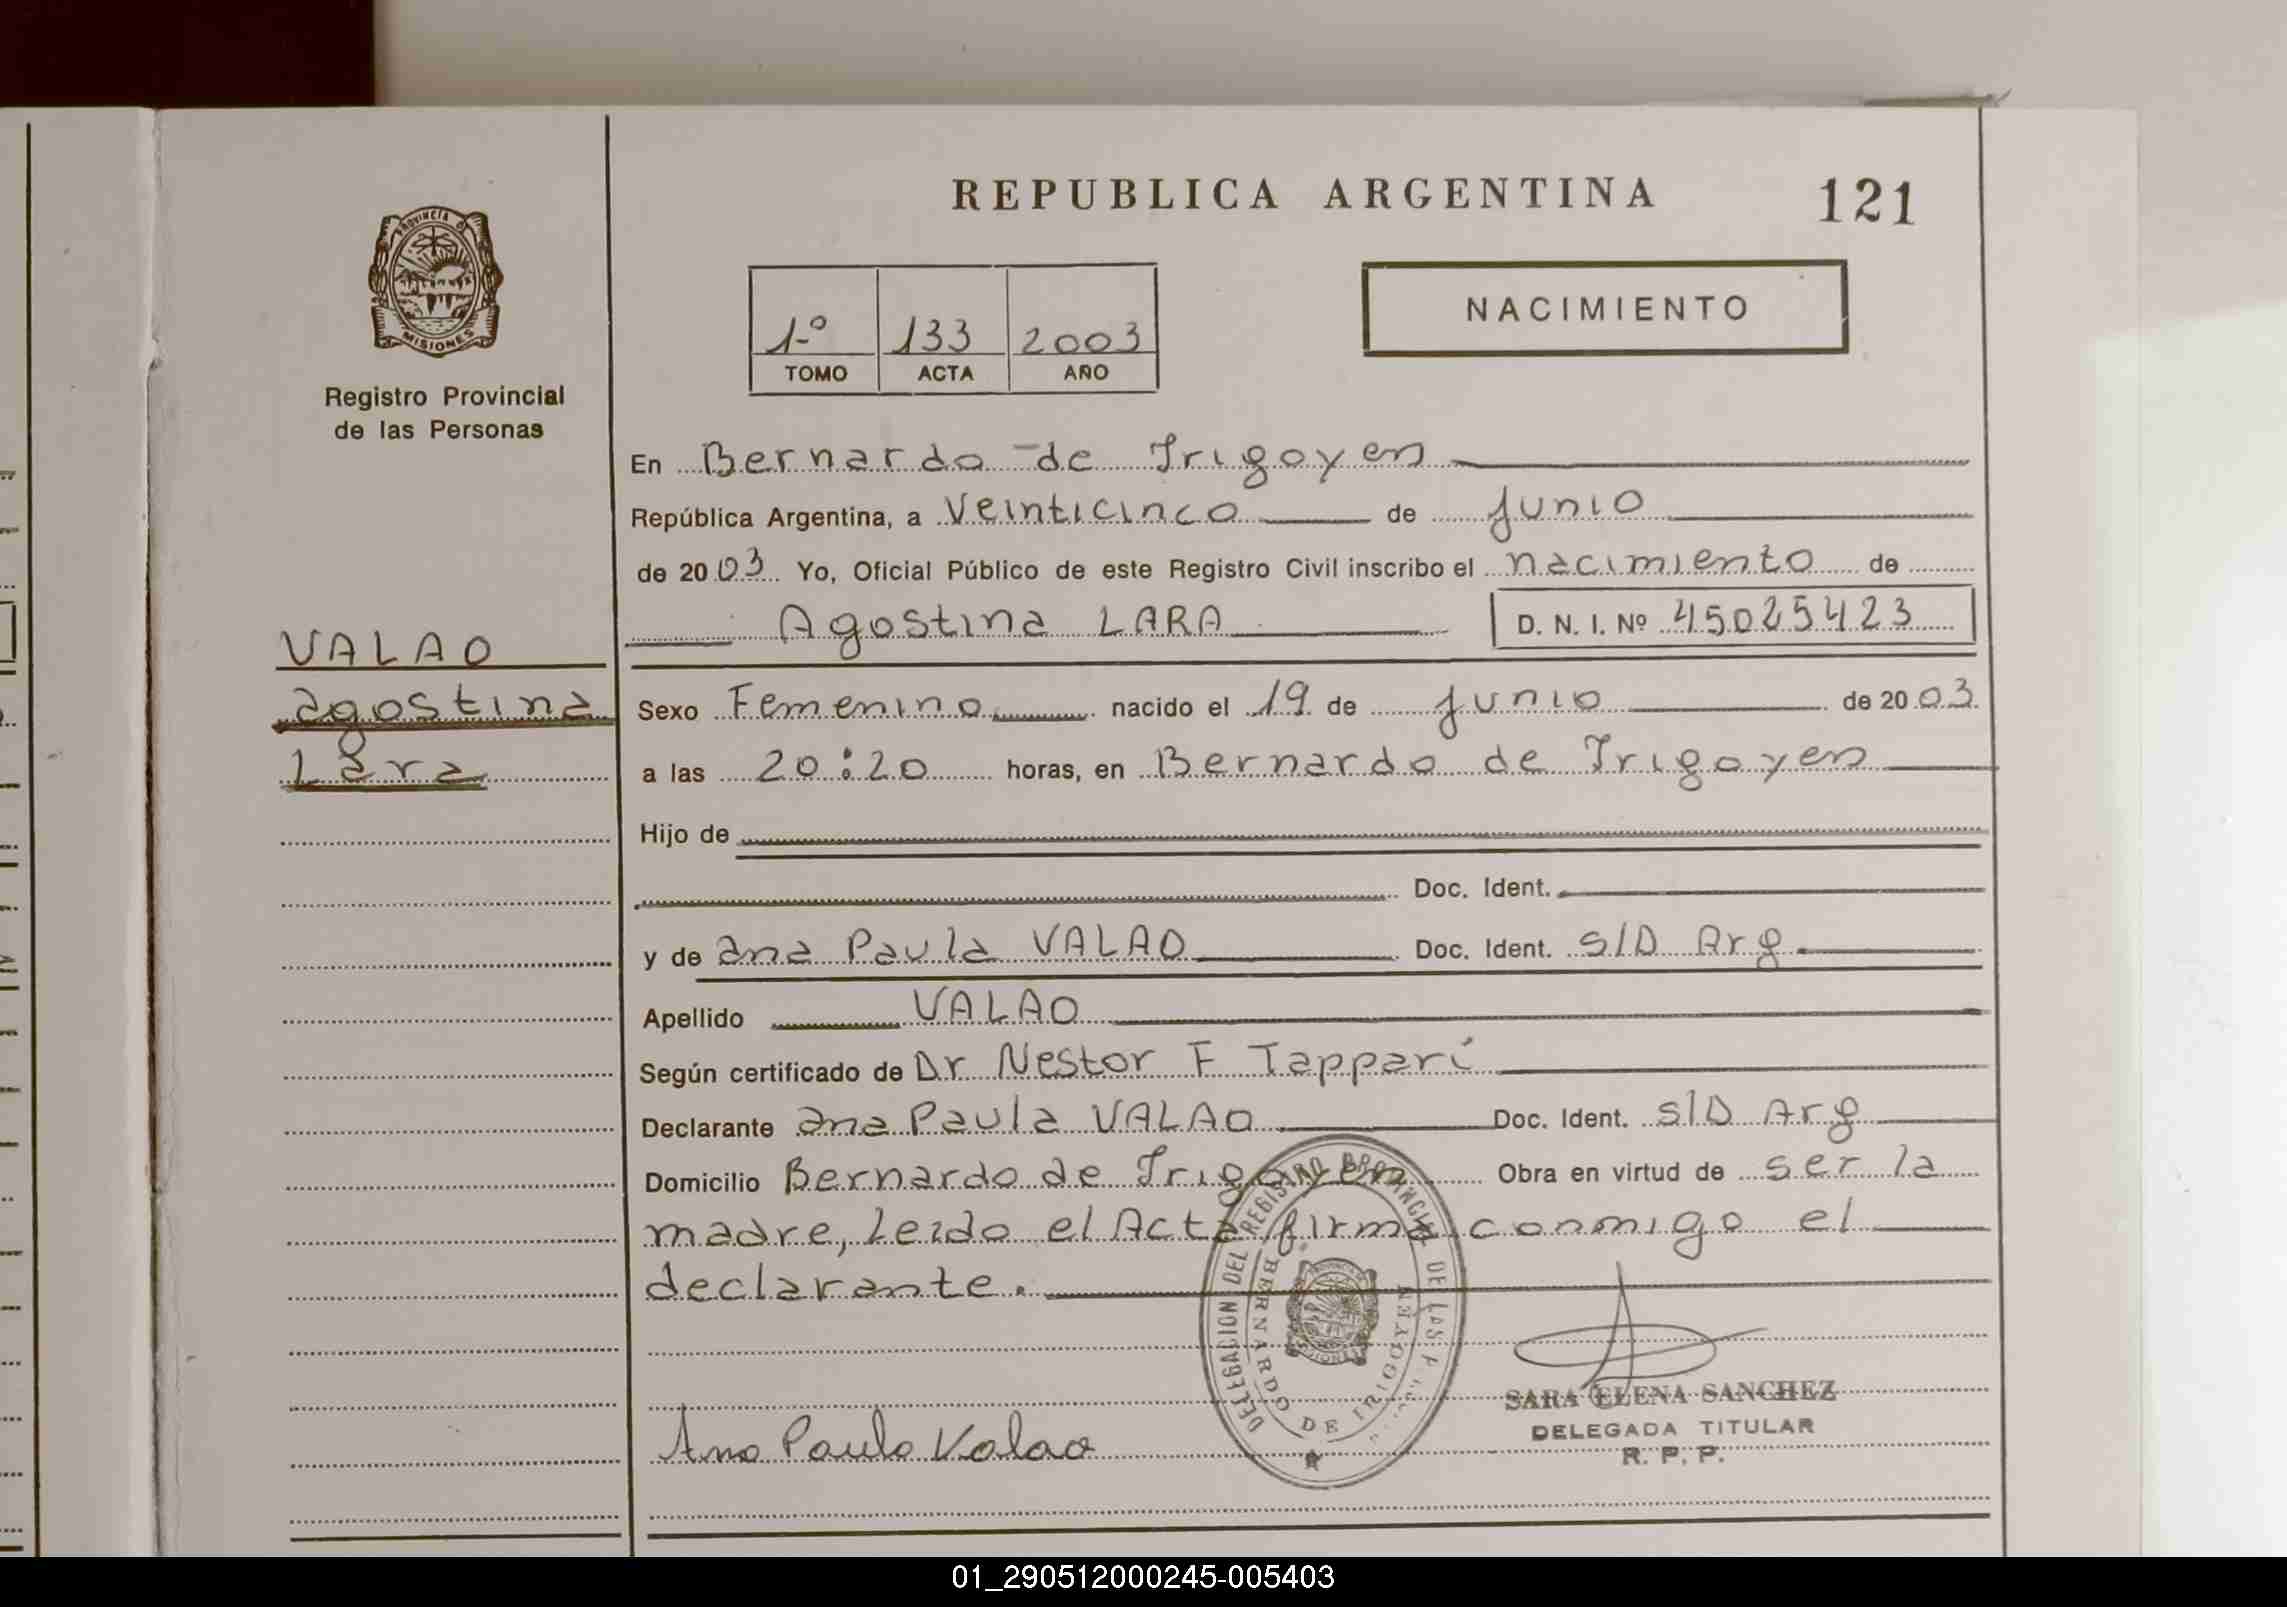 REPUBLICA ARGENTINA
121
PROVINCIA
MISIONES
Registro Provincial
de las Personas
1º 133 2003
TOMO ACTA AÑO
NACIMIENTO
VALAO
Agostina
Lara
En Bernardo de Irigoyen
República Argentina, a Veinticinco de junio
de 2003 Yo, Oficial Público de este Registro Civil inscribo el nacimiento de
Agostina LARA D. N. I. Nº 45025423
Sexo Femenino nacido el 19 de junio de 2003
a las 20:20 horas, en Bernardo de Irigoyen
Hijo de
Doc. Ident.
y de Ana Paula VALAO Doc. Ident. S/D Arg.
Apellido VALAO
Según certificado de Dr Nestor F Tappari
Declarante Ana Paula VALAO Doc. Ident. S/D Arg
Domicilio Bernardo de Irigoyen Obra en virtud de ser la
madre, Leido el Acta firma conmigo el
declarante.
DELEGACION DEL REGISTRO PROVINCIAL DE LAS
BERNARDO DE IRIGOYEN
Ana Paula Valao
SARA ELENA SANCHEZ
DELEGADA TITULAR
R. P. P.
01_290512000245-005403